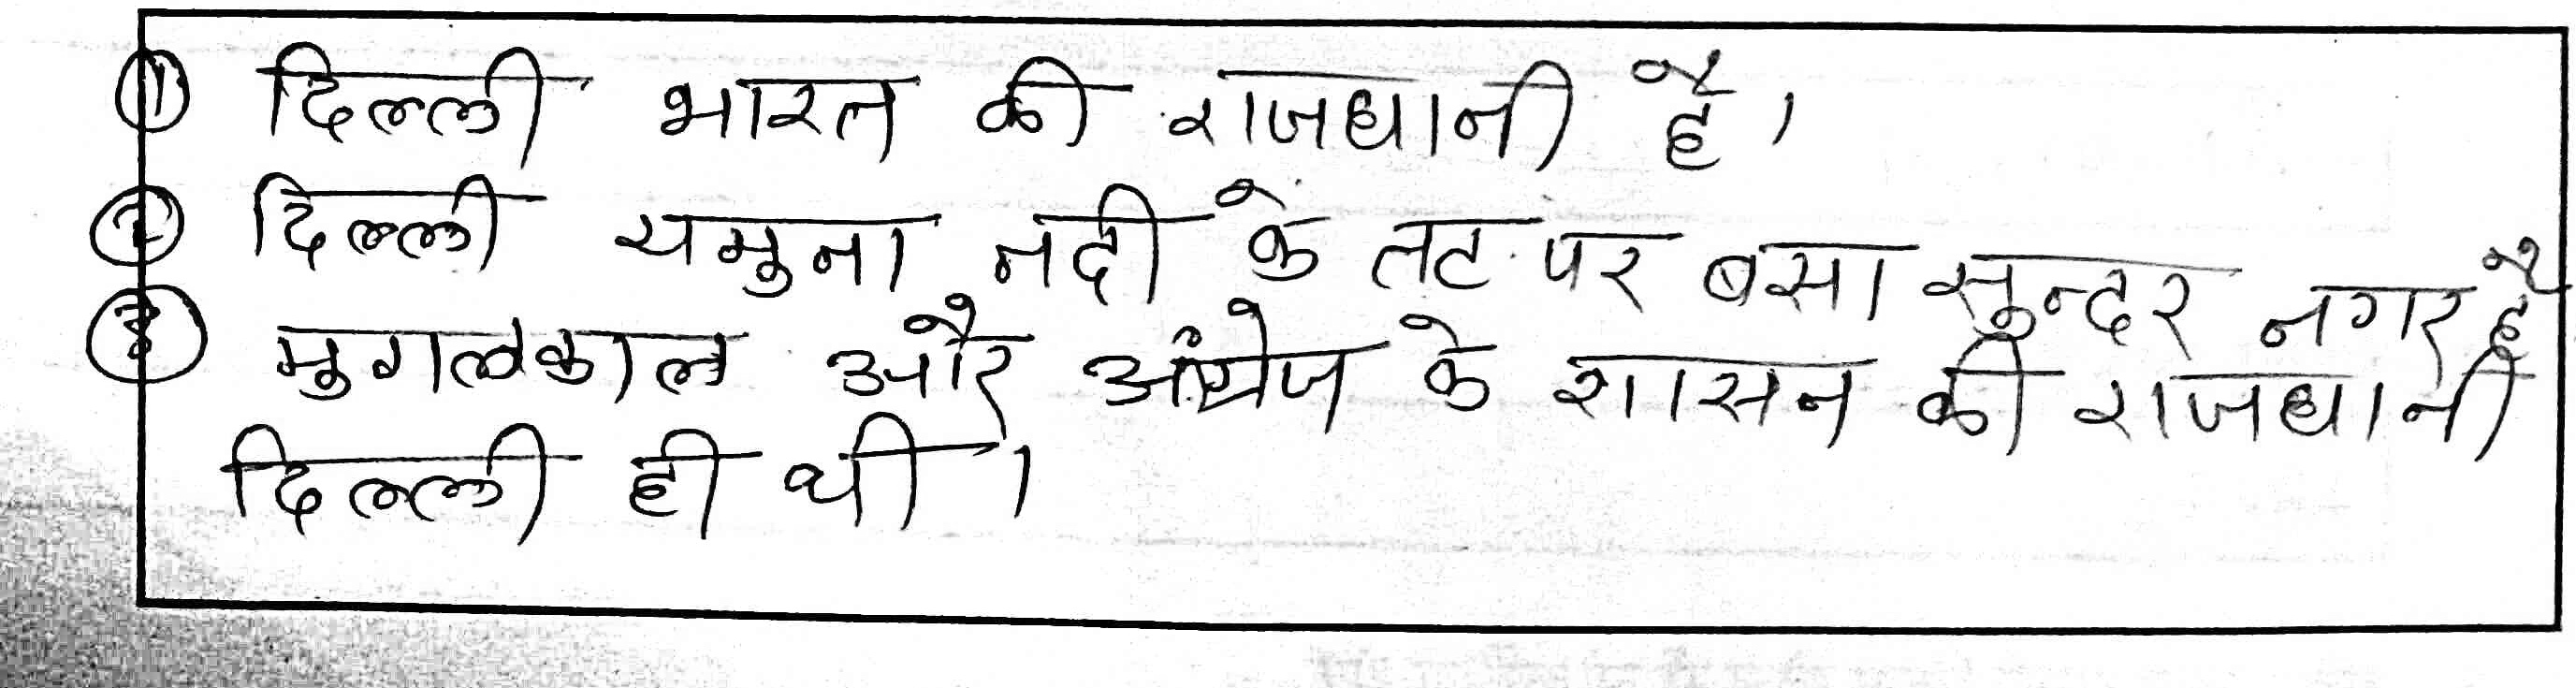 ① दिल्ली भारत की राजधानी है।
② दिल्ली यमुना नदी के तट पर बसा सुन्दर नगर है
③ मुगलकाल और अंग्रेज के शासन की राजधानी
दिल्ली ही थी।